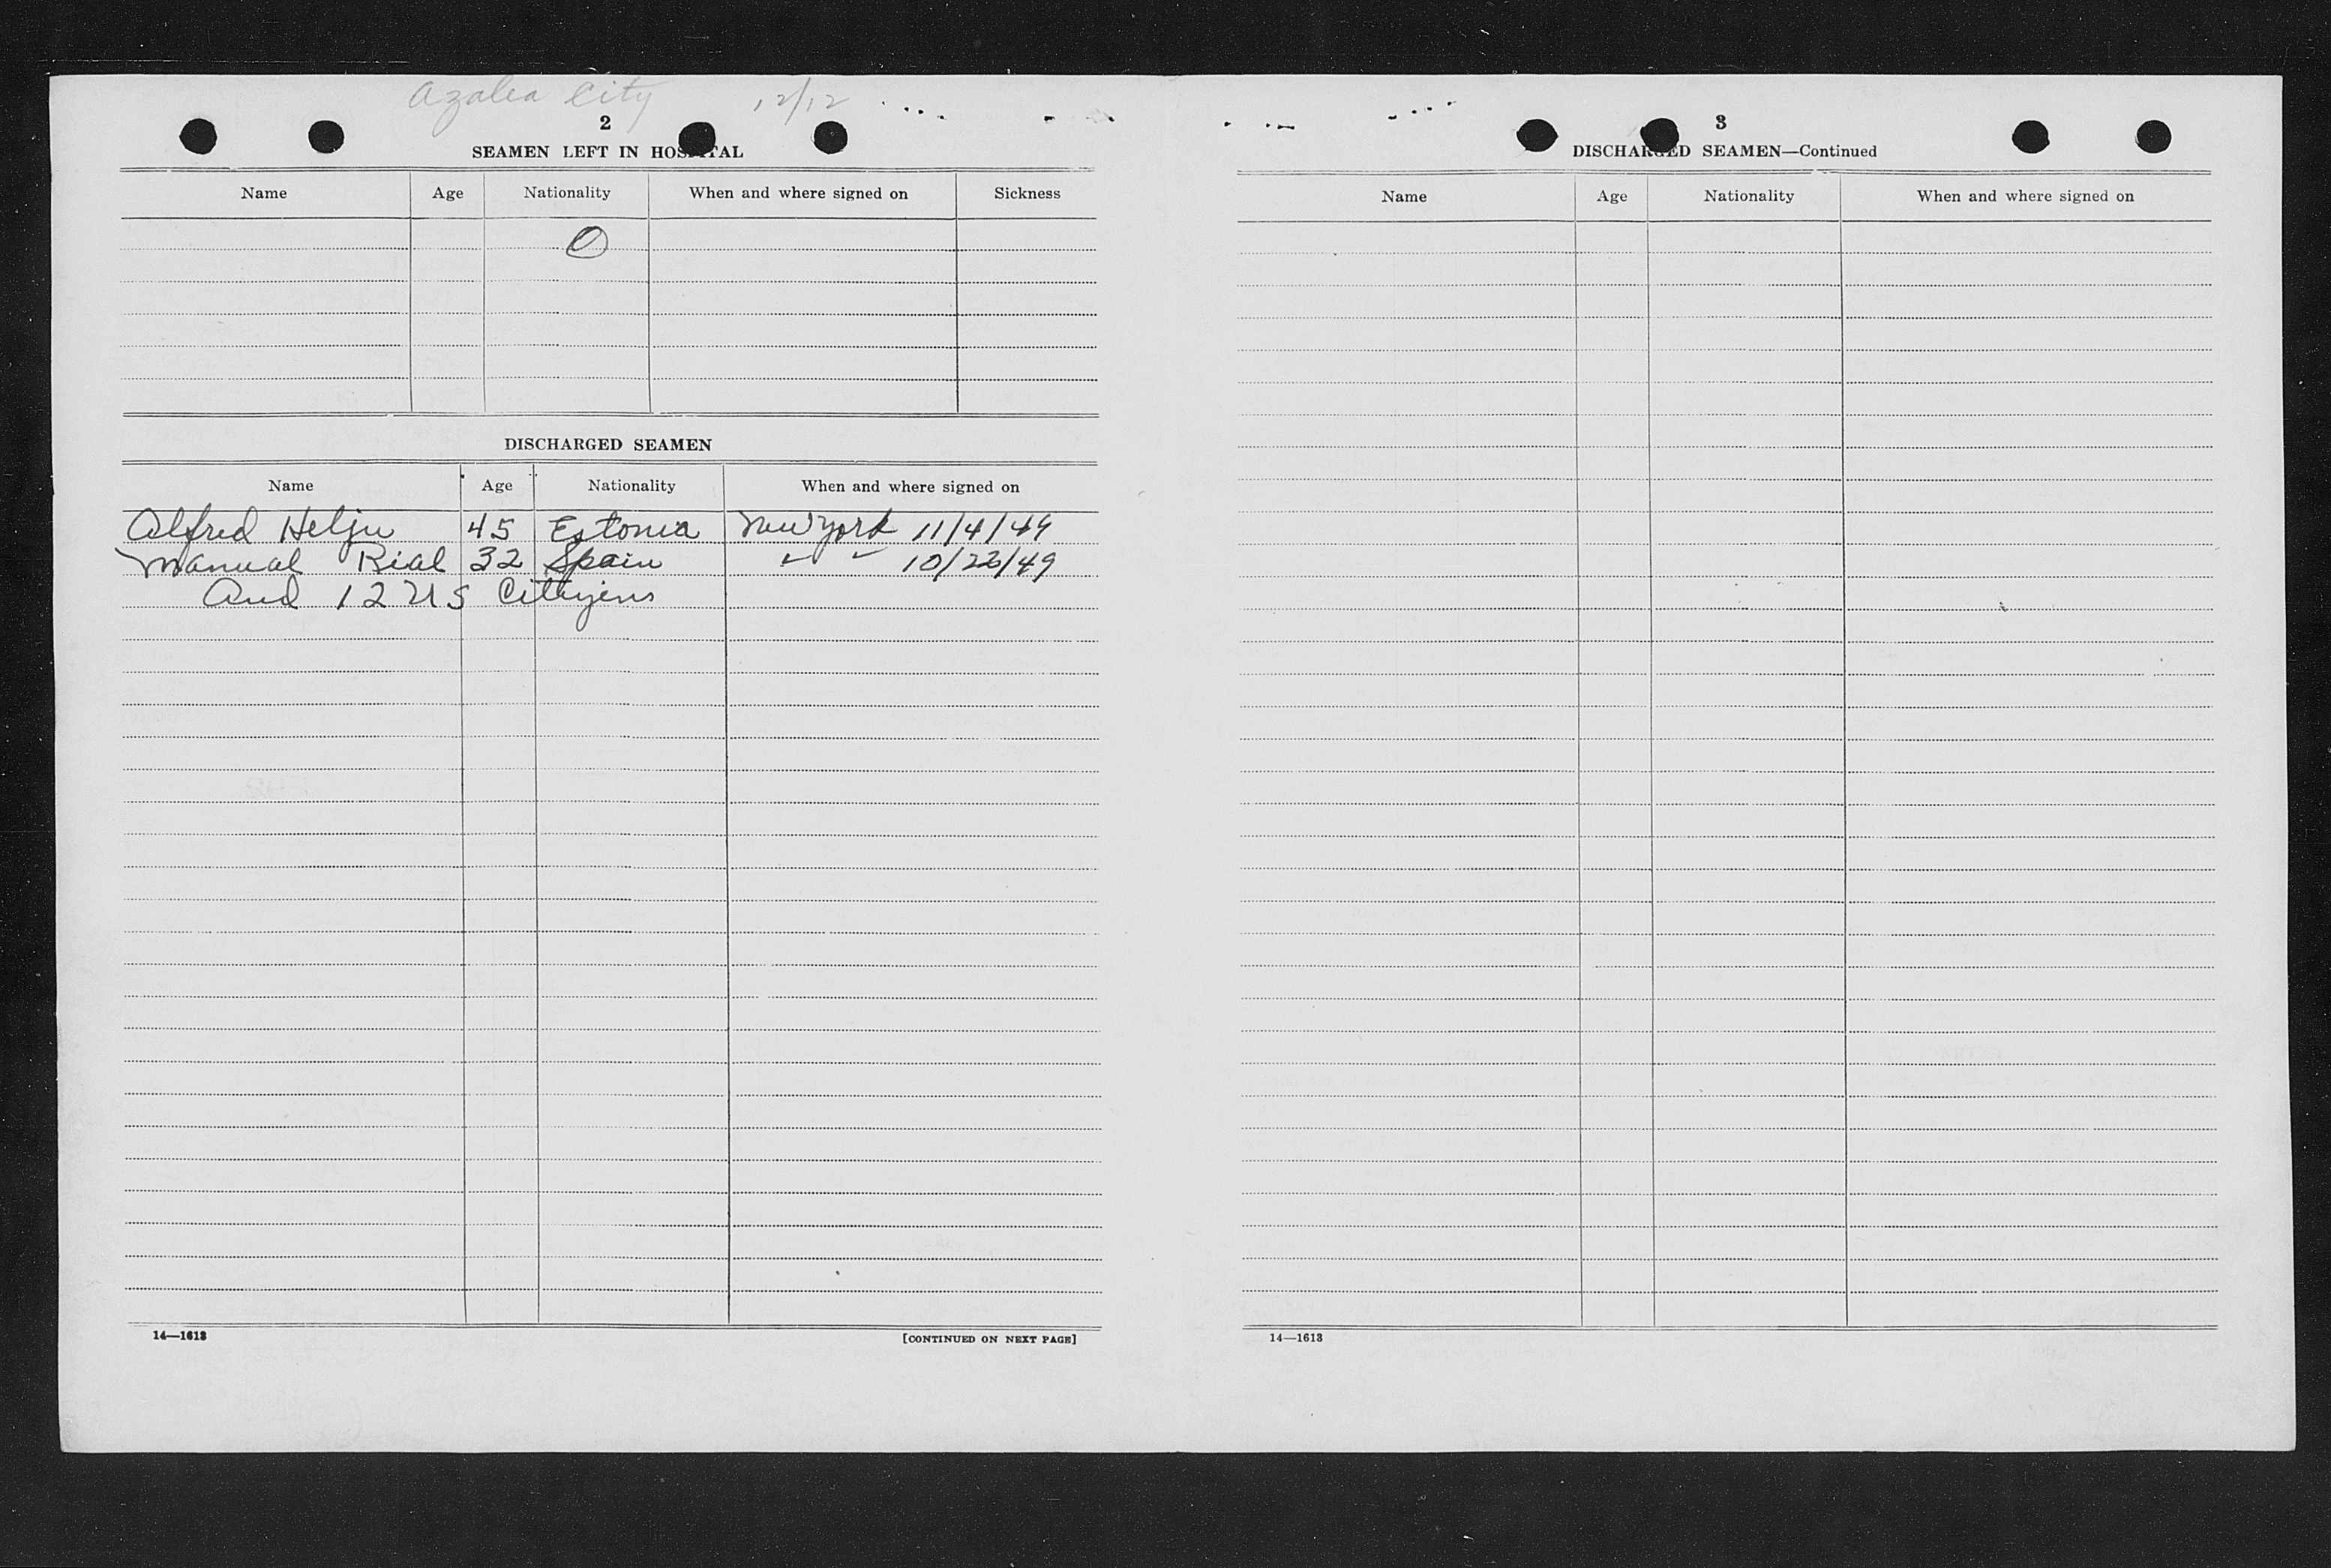 Azalea City 12/12
2
SEAMEN LEFT IN HOSPITAL
Name Age Nationality When and where signed on Sickness
0
DISCHARGED SEAMEN
Name Age Nationality When and where signed on
Alfred Helju 45 Estonia New York 11/4/49
Manual Rial 32 Spain " " 10/22/49
And 12 US Citizens
14—1613
[CONTINUED ON NEXT PAGE]
3
DISCHARGED SEAMEN—Continued
Name Age Nationality When and where signed on
14—1613